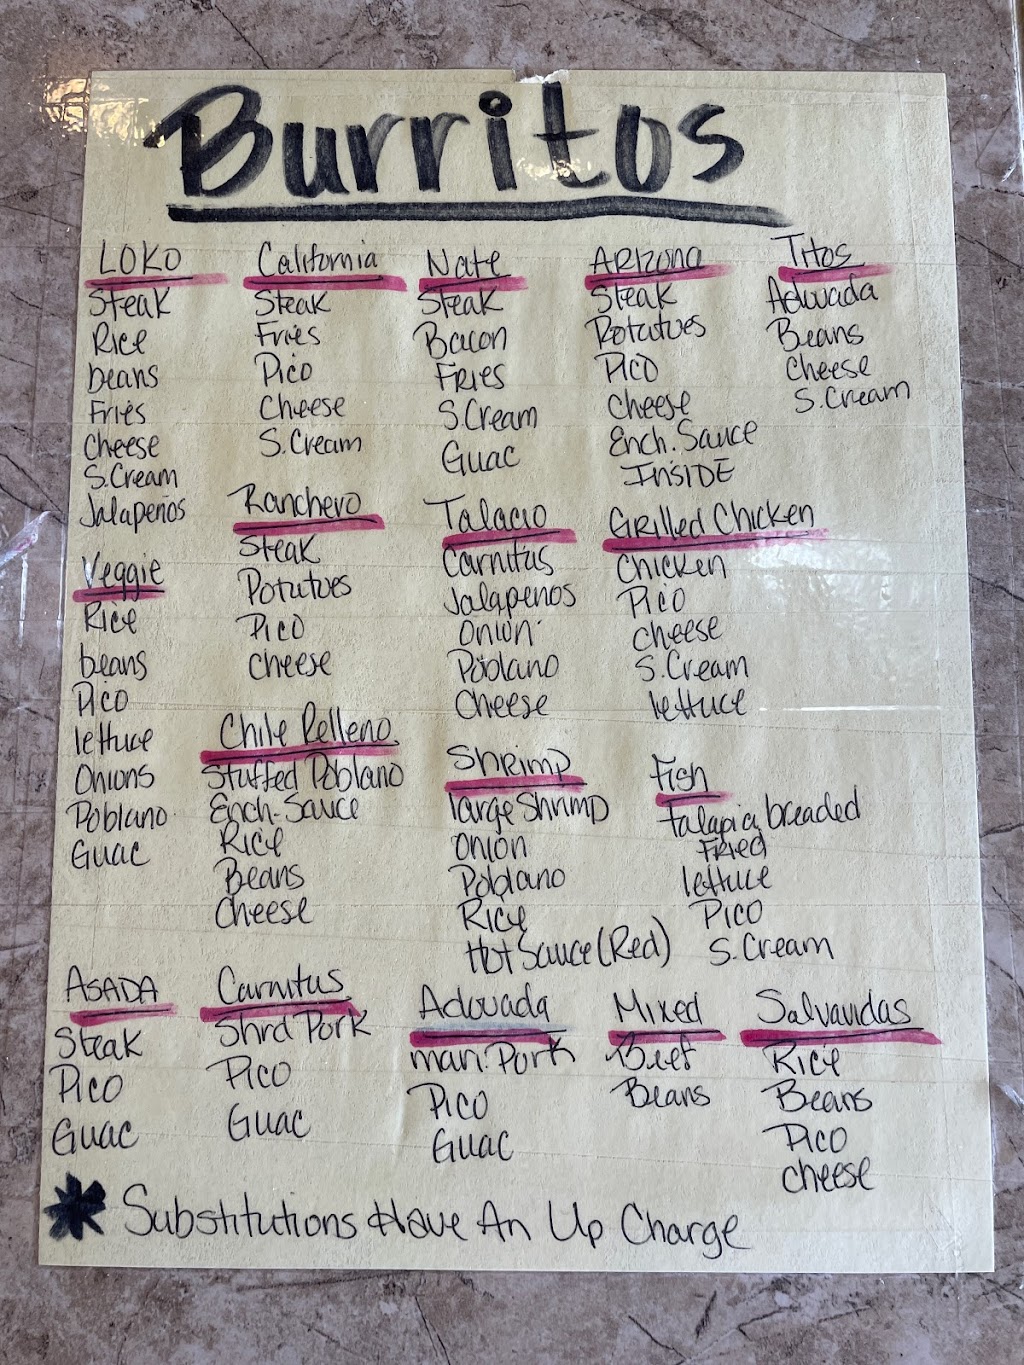 Burritos
LOKO
Steak
Rice
beans
Fries
Cheese
S.Cream
Jalapeños
California
Steak
Fries
Pico
Cheese
S.Cream
Nate
Steak
Bacon
Fries
S.Cream
Guac
Arizona
Steak
Potatoes
Pico
Cheese
Ench. Sauce
INSIDE
Titos
Adovada
Beans
Cheese
S.Cream
Veggie
Rice
beans
Pico
lettuce
Onions
Poblano
Guac
Ranchero
Steak
Potatoes
Pico
Cheese
Talacio
Carnitas
Jalapenos
Onion
Poblano
Cheese
Grilled Chicken
Chicken
Pico
Cheese
S.Cream
lettuce
Chile Relleno
Stuffed Poblano
Ench. Sauce
Rice
Beans
Cheese
Shrimp
large Shrimp
Onion
Poblano
Rice
Hot Sauce (Red)
Fish
talapia breaded
Fried
lettuce
Pico
S.Cream
ASADA
Steak
Pico
Guac
Carnitas
Shrd Pork
Pico
Guac
Adovada
mari. Pork
Pico
Guac
Mixed
Beef
Beans
Salvavidas
Rice
Beans
Pico
Cheese
* Substitutions Have An Up Charge